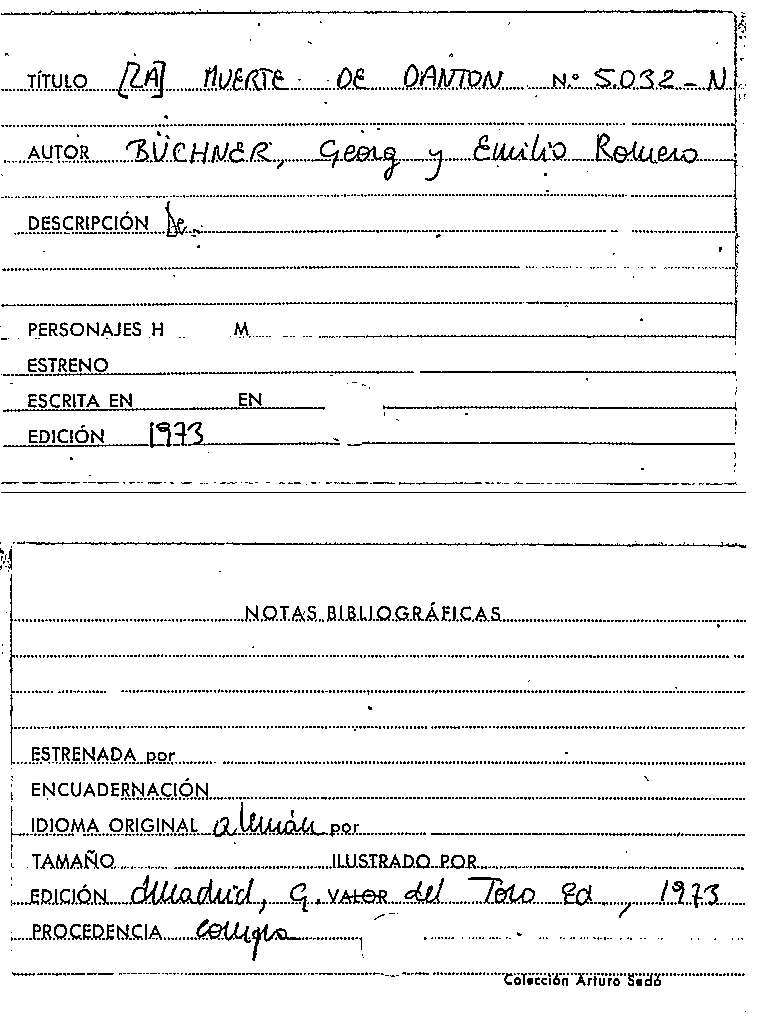 TÍTULO [LA] MUERTE DE DANTON N.º 5.032-N
AUTOR BÜCHNER, Georg y Emilio Romero
DESCRIPCIÓN De
PERSONAJES H M
ESTRENO
ESCRITA EN EN
EDICIÓN 1973
NOTAS BIBLIOGRÁFICAS
ESTRENADA por
ENCUADERNACIÓN
IDIOMA ORIGINAL alemán por
TAMAÑO ILUSTRADO POR
EDICIÓN Madrid, G. VALOR del Toro Ed., 1973
PROCEDENCIA compra
Colección Arturo Sedó